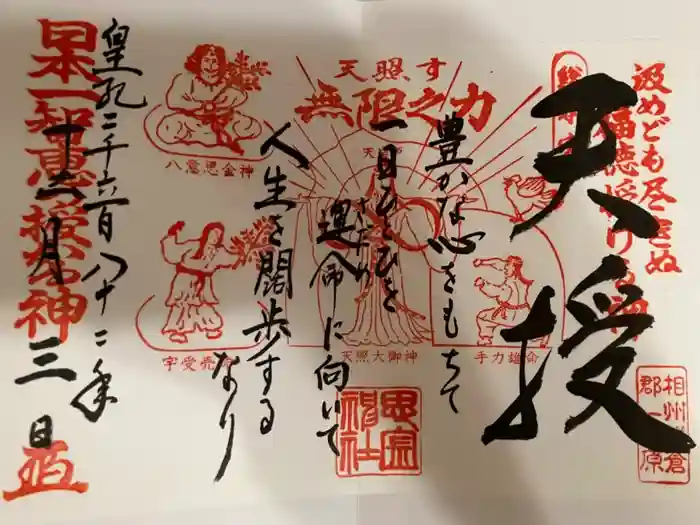 汲めども尽きぬ
福徳授ける
天授
相州鎌倉
郡一原
豊かな心をもちて
一日ひとひを
運命に向いて
さだめ
人生を闊歩する
なり
天照す
無限之力
八意思金神
宇受売命
天照大御神
手力雄命
思金神社
皇紀二千六百八十二年
十二月三日
日本一知恵の授け神